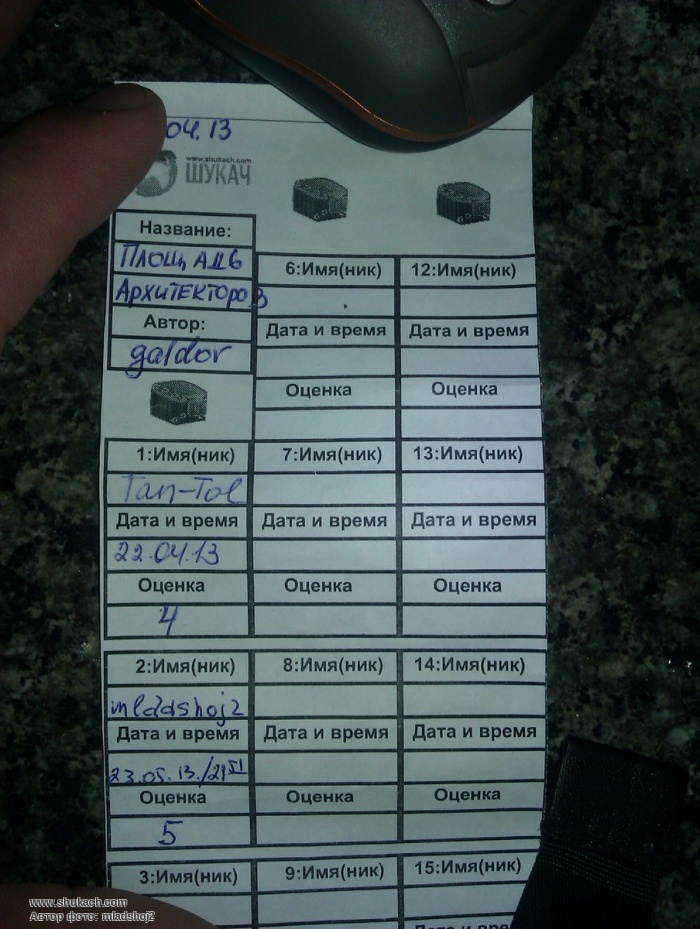 04.13
www.shukach.com
ШУКАЧ
Название:
ПЛОЩАДЬ
АРХИТЕКТОРОВ
Автор:
galdor
1:Имя(ник)
Tan-Tol
Дата и время
22.04.13
Оценка
4
2:Имя(ник)
mladshoj2
Дата и время
23.05.13./21
Оценка
5
3:Имя(ник)
6:Имя(ник)
Дата и время
Оценка
7:Имя(ник)
Дата и время
Оценка
8:Имя(ник)
Дата и время
Оценка
9:Имя(ник)
12:Имя(ник)
Дата и время
Оценка
13:Имя(ник)
Дата и время
Оценка
14:Имя(ник)
Дата и время
Оценка
15:Имя(ник)
www.shukach.com
Автор фото: mladshoj2